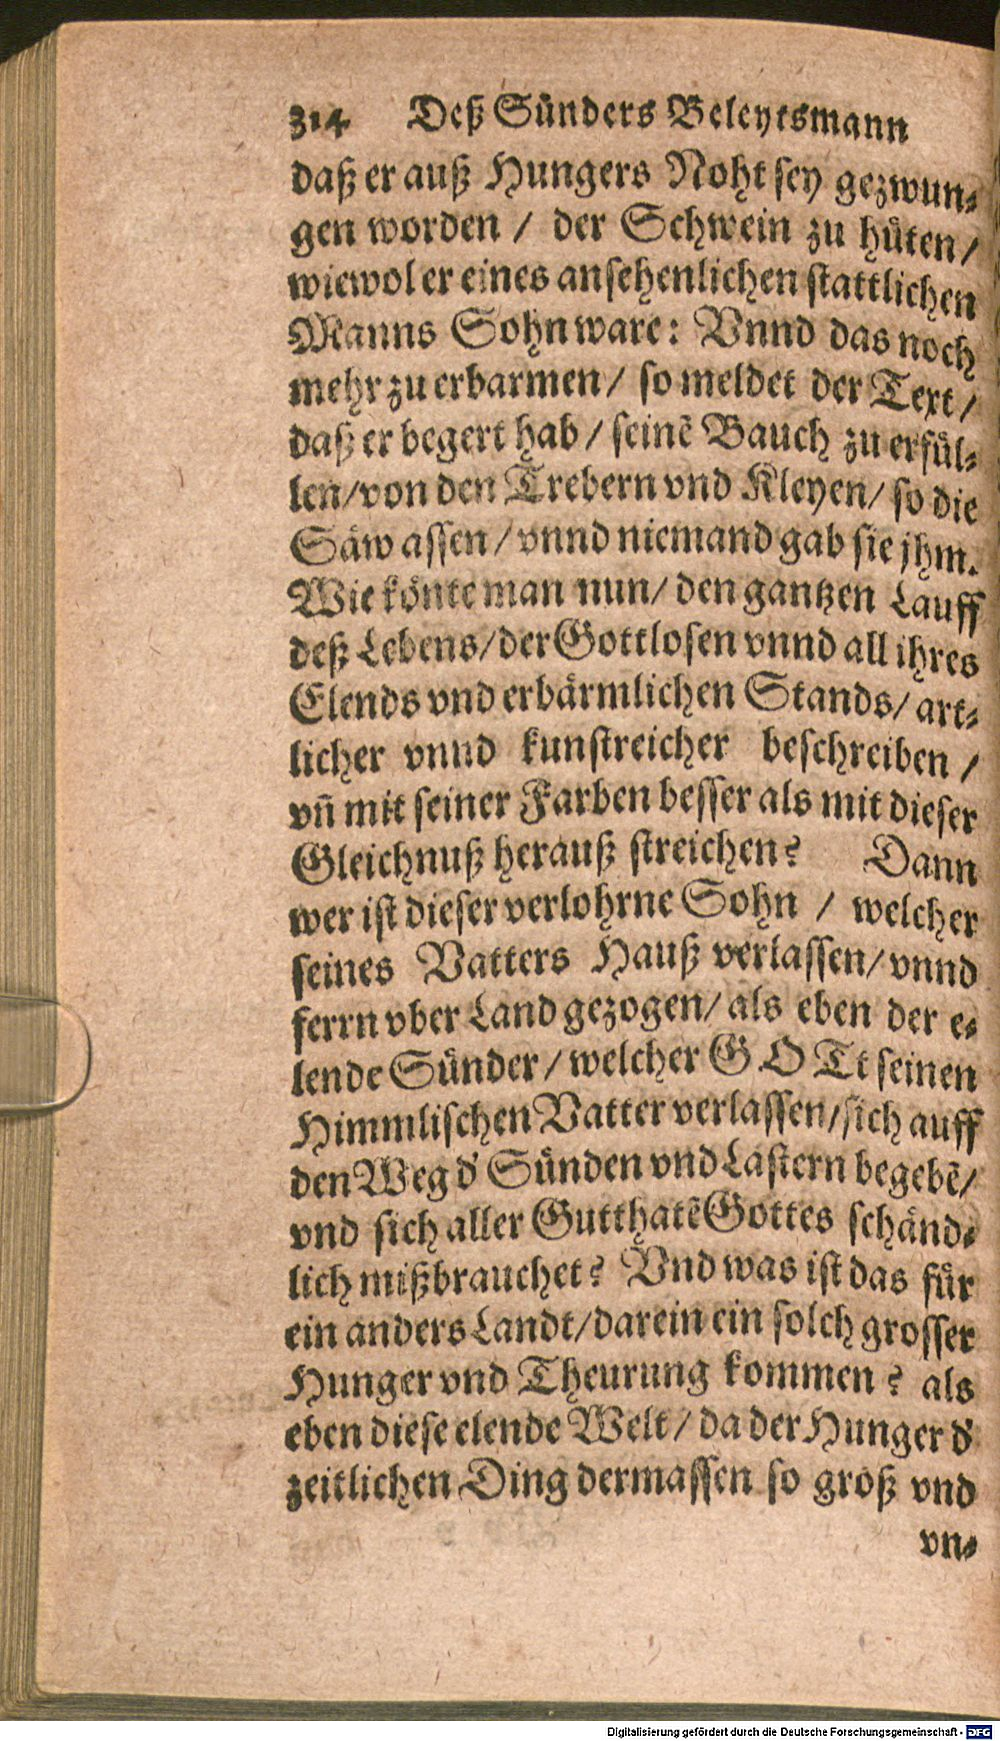 314 Deß Sünders Beleytsmann
daß er auß Hungers Noht sey gezwun-
gen worden / der Schwein zu hüten /
wiewol er eines ansehenlichen stattlichen
Manns Sohn ware: Vnnd das noch
mehr zu erbarmen / so meldet der Text /
daß er begert hab / seinē Bauch zu erfül-
len / von den Trebern vnd Kleyen / so die
Säw assen / vnnd niemand gab sie jhm.
Wie könte man nun / den gantzen Lauff
deß Lebens / der Gottlosen vnnd all ihres
Elends vnd erbärmlichen Stands / art-
licher vnnd kunstreicher beschreiben /
vn̄ mit seiner Farben besser als mit dieser
Gleichnuß herauß streichen? Dann
wer ist dieser verlohrne Sohn / welcher
seines Vatters Hauß verlassen / vnnd
ferrn vber Land gezogen / als eben der e-
lende Sünder / welcher GOTt seinen
Himmlischen Vatter verlassen / sich auff
den Weg d' Sünden vnd Lastern begebē /
vnd sich aller Gutthatē Gottes schänd-
lich mißbrauchet? Vnd was ist das für
ein anders Landt / darein ein solch grosser
Hunger vnd Theurung kommen? als
eben diese elende Welt / da der Hunger d'
zeitlichen Ding dermassen so groß vnd
vn-
Digitalisierung gefördert durch die Deutsche Forschungsgemeinschaft - DFG